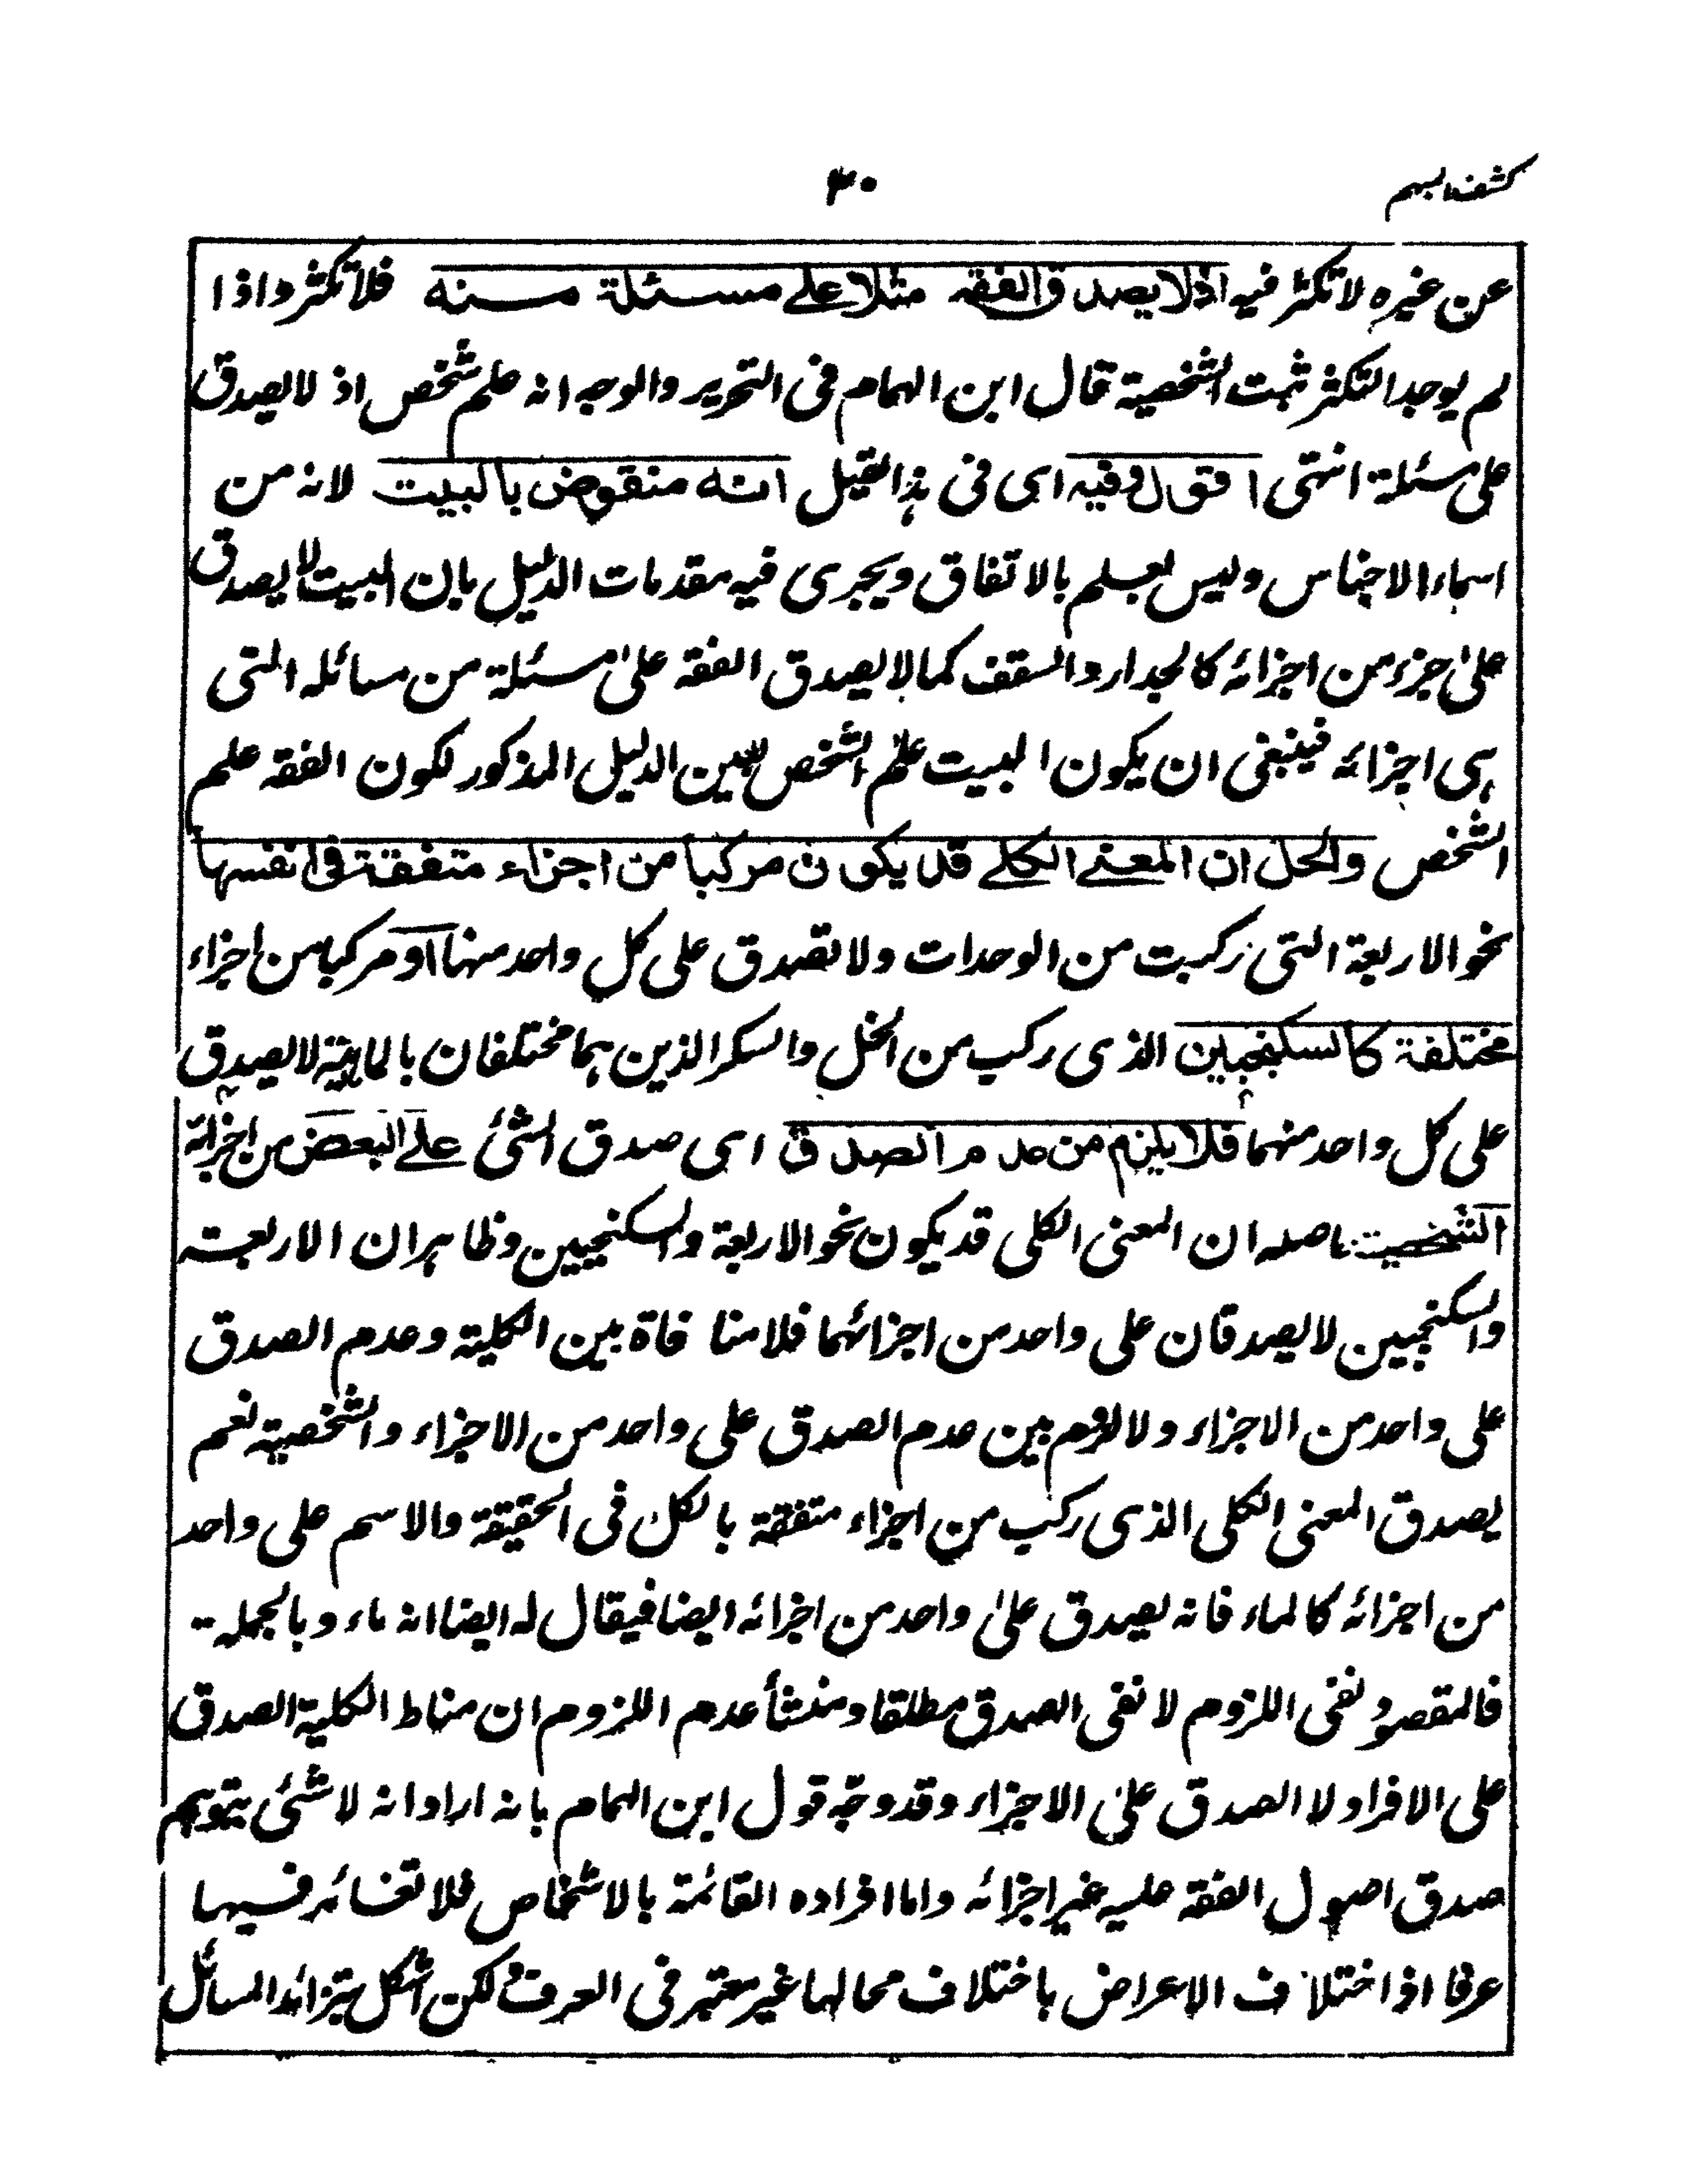 كشف المبهم
٣٠
عن غيره لا تكثر فيه اذ لا يصدق الفقه مثلا على مسئلة مسئلة منه فلا تكثر واذا
لم يوجد التكثر ثبت الشخصية قال ابن الهمام فى التحرير والوجه انه علم شخص اذ لا يصدق
على مسئلة انتهى اقول وفيه اى فى هذا القيل انه منقوض بالبيت لانه من
اسماء الاجناس وليس بعلم بالاتفاق ويجرى فيه مقدمات الدليل بان البيت لا يصدق
على جزء من اجزائه كالجدار والسقف كما لا يصدق الفقه على مسئلة من مسائله التى
هى اجزائه فينبغى ان يكون البيت علم الشخص بعين الدليل المذكور لكون الفقه علم
الشخص والحل ان المعنى الكلى قد يكون مركبا من اجزاء متفقة فى انفسها
نحو الاربعة التى ركبت من الوحدات ولا تصدق على كل واحد منها او مركبا من اجزاء
مختلفة كالسكنجبين الذى ركب من الخل والسكر الذين هما مختلفان بالماهية لا يصدق
على كل واحد منهما فلا يلزم من عدم الصدق اى صدق الشئ على البعض من اجزائه
الشخصية حاصله ان المعنى الكلى قد يكون نحو الاربعة والسكنجبين وظاهر ان الاربعة
والسكنجبين لا يصدقان على واحد من اجزائهما فلا منافاة بين الكلية وعدم الصدق
على واحد من الاجزاء ولا لزوم بين عدم الصدق على واحد من الاجزاء والشخصية نعم
يصدق المعنى الكلى الذى ركب من اجزاء متفقة بالكل فى الحقيقة والاسم على واحد
من اجزائه كالماء فانه يصدق على واحد من اجزائه ايضا فيقال له ايضا انه ماء وبالجملة
فالمقصود نفى اللزوم لا نفى الصدق مطلقا ومنشأ عدم اللزوم ان مناط الكلية الصدق
على الافراد لا الصدق على الاجزاء وقد وجّه قول ابن الهمام بانه اراد انه لا شئ يتوهم
صدق اصول الفقه عليه غير اجزائه واما افراده القائمة بالاشخاص فلا تغائر فيها
عرفا اذ اختلاف الاعراض باختلاف محالها غير معتبر فى العرف لكن اشكل بتزائد المسائل